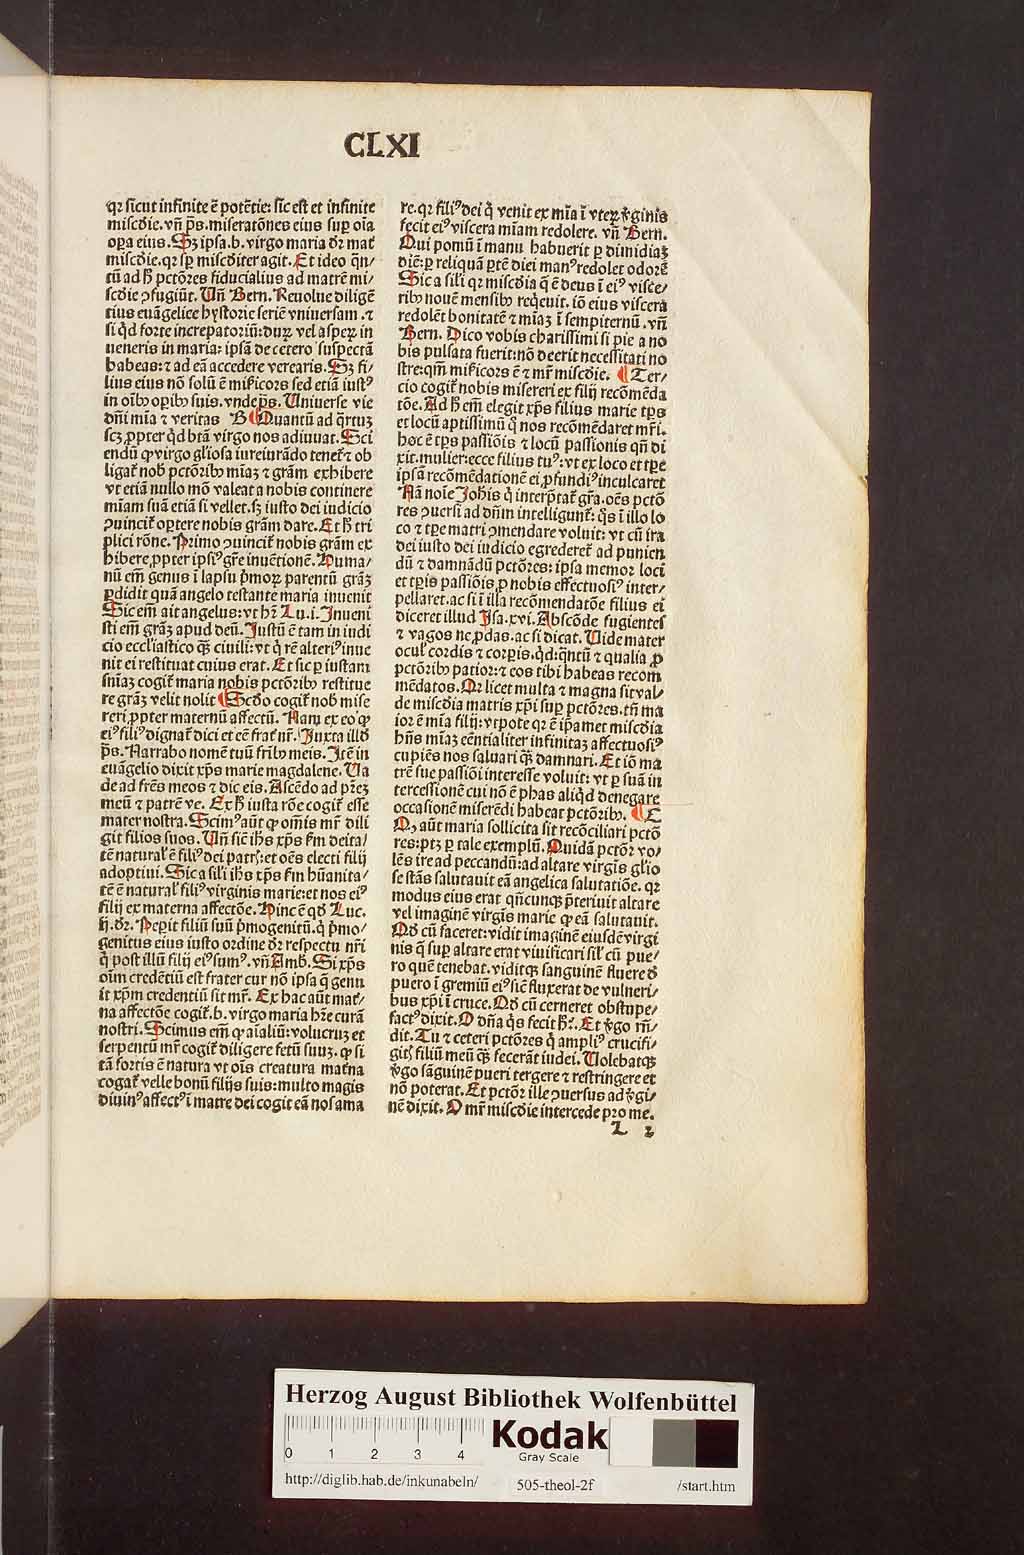 CLXI
qꝛ sicut infinite ē potētie: sic est et infinite
miscd̄ie. vn̄ p̄s. miseratōnes eius sup oīa
opa eius. Sꝫ ipsa .b. virgo maria dr̄ mat̄
miscd̄ie. qꝛ sp̄ miscd̄iter agit. Et ideo q̄n/
tū ad h̄ pctōres fiducialius ad matrē mi/
scd̄ie ꝯfugiūt. Un̄ Bern. Reuolue diligē
tius euāgelice hystorie seriē vniuersam .⁊
si qd̄ forte increpatoriū: duꝝ vel aspeꝝ in
ueneris in maria: ipsā de cetero suspectā
habeas: ⁊ ad eā accedere verearis. Sꝫ fi/
lius eius nō solū ē mīcors sed etiā iustꝰ
in oībꝰ opibꝰ suis. vnde p̄s. Uniuerse vie
dn̄i mīa ⁊ veritas B Quantū ad q̄rtuꝫ
scꝫ ꝓpter qd̄ btā virgo nos adiuuat. Sci
endū ꝙ virgo gl̄iosa iureiurādo tenet̄ ⁊ ob
ligat̄ nob̄ pctōribꝰ mīaꝫ ⁊ grām exhibere
vt etiā nullo mō valeat a nobis continere
mīam suā etiā si vellet. sꝫ iusto dei iudicio
ꝯuincit̄ optere nobis grām dare. Et h̄ tri
plici rōne. Primo ꝯuincit̄ nobis grām ex
hibere ꝓpter ipsiꝰ gr̄e inuētionē. Huma/
nū em̄ genus ī lapsu p̄moꝝ parentū grāꝫ
ꝑdidit quā angelo testante maria inuenit
Sic em̄ ait angelus: vt hr̄ Lu.i. Inueni
sti em̄ grāꝫ apud deū. Justū ē tam in iudi
cio eccl̄iastico qꝫ ciuili: vt q̄ rē alteriꝰ inue
nit ei restituat cuius erat. Et sic ꝑ iustam
sn̄iaꝫ cogit̄ maria nobis pctōribꝰ restitue
re grāꝫ velit nolit Scd̄o cogit̄ nob̄ mise
reri ꝓpter maternū affectū. Nam ex eo ꝙ
eiꝰ filiꝰ dignat̄ dici et eē frat̄ nr̄. Juxta illd̄
p̄s. Narrabo nomē tuū fribꝰ meis. Itē in
euāgelio dixit xp̄s marie magdalene. Va
de ad frēs meos ⁊ dic eis. Ascēdo ad pr̄eꝫ
meū ⁊ patrē ve. Ex h̄ iusta rōe cogit̄ esse
mater nostra. Scimꝰ aūt ꝙ om̄is mr̄ dili
git filios suos. Un̄ sic̄ ih̄s xp̄s fm deita/
tē natural̄ ē filiꝰ dei patris: et oēs electi filij
adoptiui. Sic a sil̄i ih̄s xp̄s fm hūanita/
tē ē natural̄ filiꝰ virginis marie: et nos eiꝰ
filij ex materna affectōe. Hinc ē qd̄ Luc.
ij. dr̄. Pepit filiū suū p̄mogenitū. q̄ p̄mo/
genitus eius iusto ordine dr̄ respectu nr̄i
q̄ post illū filij eiꝰ sumꝰ. vn̄ Amb̄. Si xp̄s
oīm credētiū est frater cur nō ipsa q̄ genu
it xp̄m credentiū sit mr̄. Ex hac aūt mat̄/
na affectōe cogit̄ .b. virgo maria hr̄e curā
nostri. Scimus em̄ ꝙ aīaliū: volucruꝫ et
serpentū mr̄ cogit̄ diligere fetū suuꝫ. ꝙ si
tā fortis ē natura vt oīs creatura mat̄na
cogat̄ velle bonū filijs suis: multo magis
diuinꝰ affectꝰ ī matre dei cogit eā nos ama
re. qꝛ filiꝰ dei q̄ venit ex mīa ī vteꝝ v̄ginis
fecit eiꝰ viscera mīam redolere. vn̄ Bern.
Qui pomū ī manu habuerit ꝑ dimidiaꝫ
diē: ꝑ reliquā ꝑtē diei manꝰ redolet odorē
Sic a sil̄i qꝛ miscd̄ia q̄ ē deus ī eiꝰ visce/
ribꝰ nouē mensibꝰ req̄euit. iō eius viscera
redolēt bonitatē ⁊ mīaꝫ ī sempiternū. vn̄
Bern. Dico vobis charissimi si pie a no
bis pulsata fuerit: nō deerit necessitati no
stre: qm̄ mīcors ē ⁊ mr̄ miscd̄ie. Ter/
cio cogit̄ nobis misereri ex filij recōmēda
tōe. Ad h̄ em̄ elegit xp̄s filius marie tp̄s
et locū aptissimū q̄ nos recōmēdaret mr̄i.
hoc ē tp̄s passiōis ⁊ locū passionis qn̄ di
xit. mulier: ecce filius tuꝰ: vt ex loco et tp̄e
ipsā recōmēdationē ei ꝓfundiꝰ inculcaret
Nā noīe Joh̄is q̄ interp̄tat̄ gr̄a. oēs pctō
res ꝯuersi ad dn̄m intelligunt̄: q̄s ī illo lo
co ⁊ tp̄e matri ꝯmendare voluit: vt cū ira
dei iusto dei iudicio egrederet̄ ad punien
dū ⁊ damnādū pctōres: ipsa memor loci
et tp̄is passiōis ꝓ nobis effectuosiꝰ inter/
pellaret. ac si ī illa recōmendatōe filius ei
diceret illud Isa.xvi. Abscōde fugientes
⁊ vagos ne ꝓdas. ac si dicat. Uide mater
ocul̄ cordis ⁊ corꝑis. qd̄: q̄ntū ⁊ qualia ꝓ
pctōribꝰ patior: ⁊ eos tibi habeas recom
mēdatos. Qꝛ licet multa ⁊ magna sit val/
de miscd̄ia matris xp̄i sup pctōres. tn̄ ma
ior ē mīa filij: vtpote qꝛ ē ip̄amet miscd̄ia
hn̄s mīaꝫ eēntialiter infinitaꝫ affectuosiꝰ
cupiēs nos saluari qꝫ damnari. Et iō ma
trē sue passiōi interesse voluit: vt ꝑ suā in
tercessionē cui nō ē phas aliqd̄ denegare
occasionē miserēdi habeat pctōribꝰ. C
Qꝫ aūt maria sollicita sit recōciliari pctō
res: ptꝫ ꝑ tale exemplū. Quidā pctōr vo/
lēs ire ad peccandū: ad altare virgīs gl̄io
se stās salutauit eā angelica salutatiōe. qꝛ
modus eius erat qn̄cunqꝫ p̄teriuit altare
vel imaginē virgīs marie ꝙ eā salutauit.
Qd̄ cū faceret: vidit imaginē eiusdē virgi
nis q̄ sup altare erat viuificari sil̄ cū pue/
ro quē tenebat. viditqꝫ sanguinē fluere d̄
puero ī gremiū eiꝰ sic̄ fluxerat de vulneri/
bus xp̄i ī cruce. Qd̄ cū cerneret obstupe/
factꝰ dixit. O dn̄a q̄s fecit h̄. Et v̄go rn̄/
dit. Tu ⁊ ceteri pctōres q̄ ampliꝰ crucifi/
gitꝭ filiū meū qꝫ fecerāt iudei. Uolebatqꝫ
v̄go sāguinē pueri tergere ⁊ restringere et
nō poterat. Et pctōr ille ꝯuersus ad v̄gi/
nē dixit. O mr̄ miscd̄ie intercede pro me.
L 2
Herzog August Bibliothek Wolfenbüttel
0 1 2 3 4
Kodak
Gray Scale
http://diglib.hab.de/inkunabeln/ 505-theol-2f /start.htm